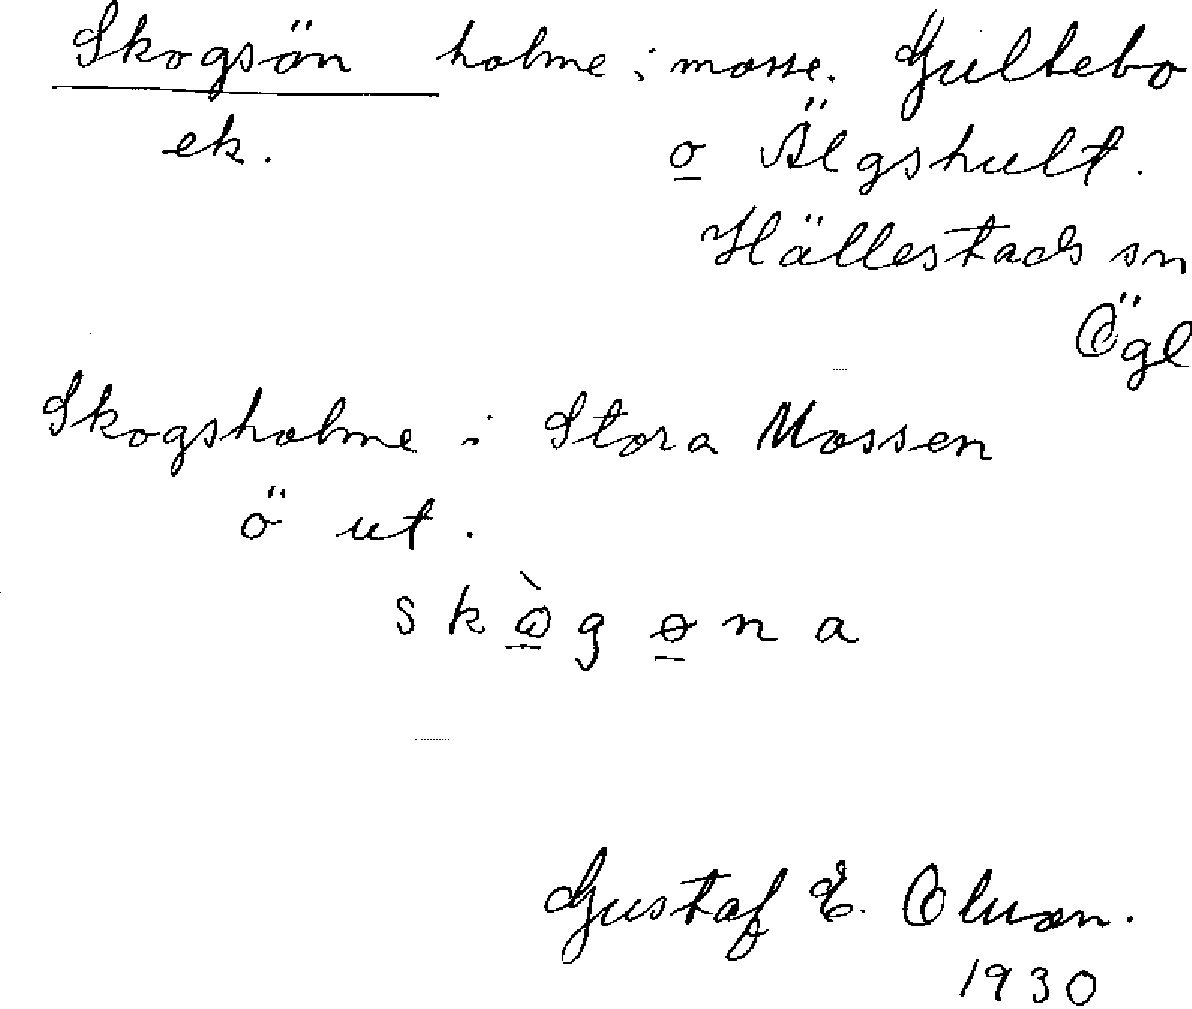 Skogsön holme i mosse. Gultebo
ek. o Älgshult.
Hällestads sn
Ögl
Skogsholme i Stora Mossen
ö ut.
skògøna
Gustaf E. Oluson.
1930